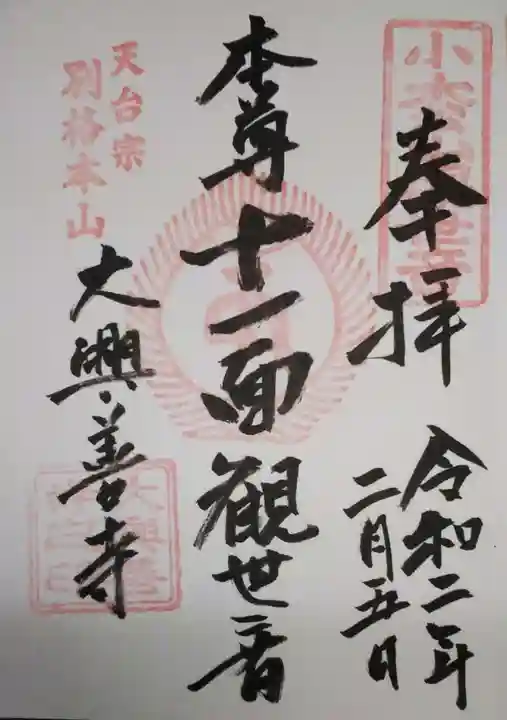 奉拝
令和二年
二月五日
本尊十一面観世音
天台宗
別格本山
大興善寺